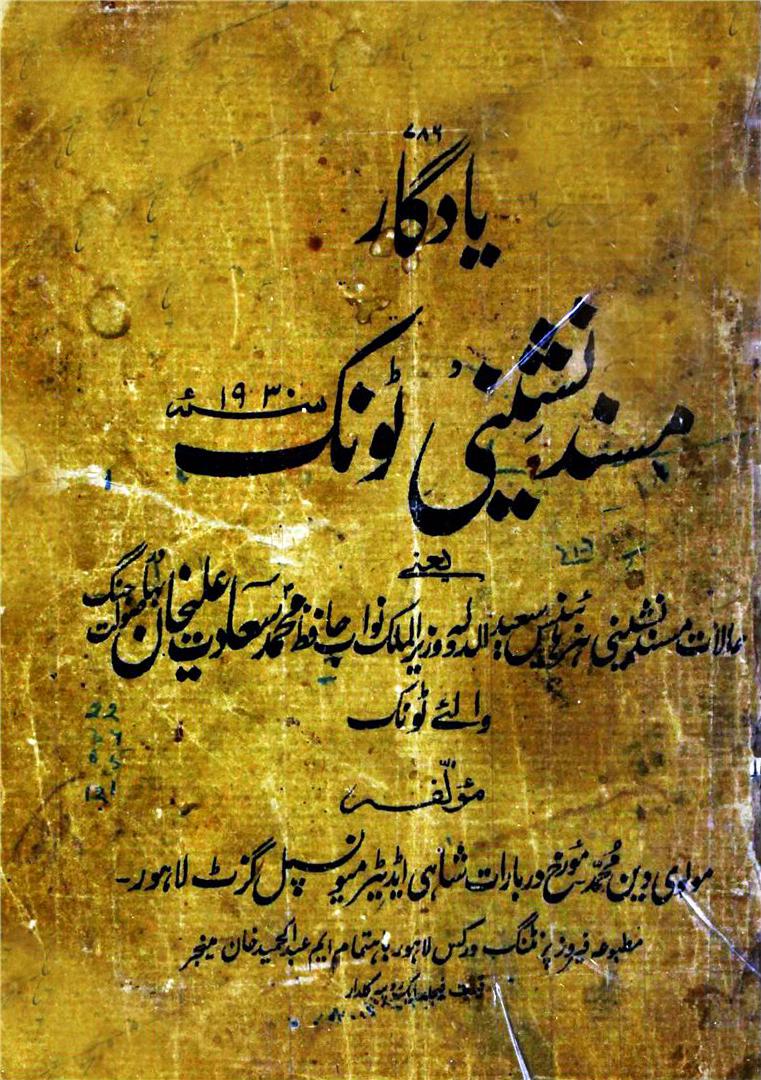 ۷۸۶
یادگار
مسند نشینی ٹونک
سنہ ۱۹۳۰ء
یعنے
حالات مسند نشینی ہز ہائینس سعید الدولہ وزیر الملک نواب حافظ محمد سعادت علیخان بہادر صولت جنگ
والئے ٹونک
مؤلفہ
مولوی دین محمد مورخ دربارات شاہی ایڈیٹر میونسپل گزٹ لاہور۔
مطبوعہ فیروز پرنٹنگ ورکس لاہور باہتمام ایم عبدالحمید خان مینجر
قیمت فیجلد ایک روپیہ کلدار
22